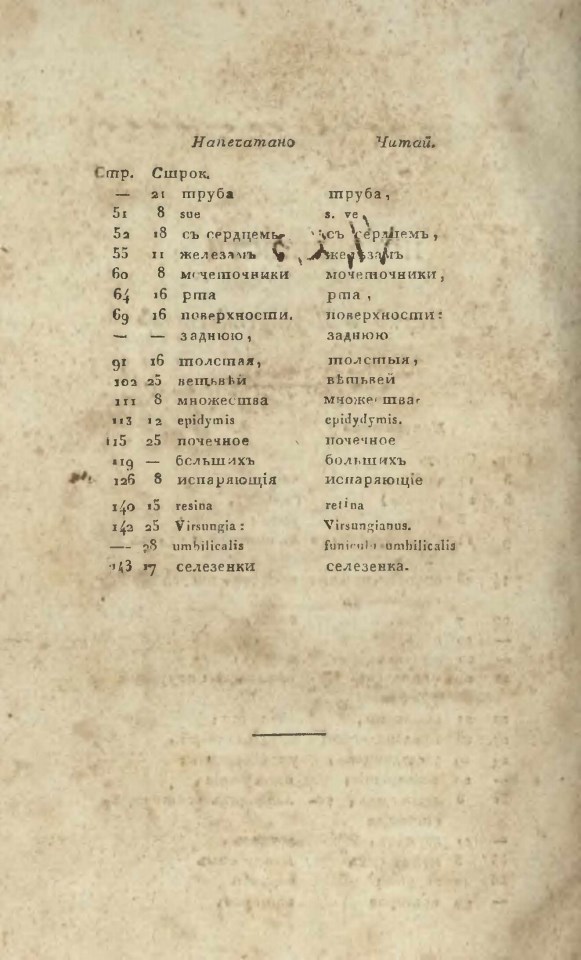 Напечатано Читай.
Стр. Строк.
— 21 труба труба,
51 8 sue s. ve
52 18 съ сердцемъ съ сердцемъ,
55 11 железамъ железамъ
60 8 мочеточники мочеточники,
64 16 рта рта,
69 16 поверхности. поверхности:
— — заднюю, заднюю
91 16 толстая, толстыя,
102 25 вещьвѣй вѣтьвей
111 8 множества множества
113 12 epidymis epidydymis.
115 25 почечное почечное
119 — большихъ большихъ
126 8 испаряющія испаряющіе
140 15 resina retina
142 25 Virsungia: Virsungianus.
— 28 umbilicalis umbilicalis
143 17 селезенки селезенка.